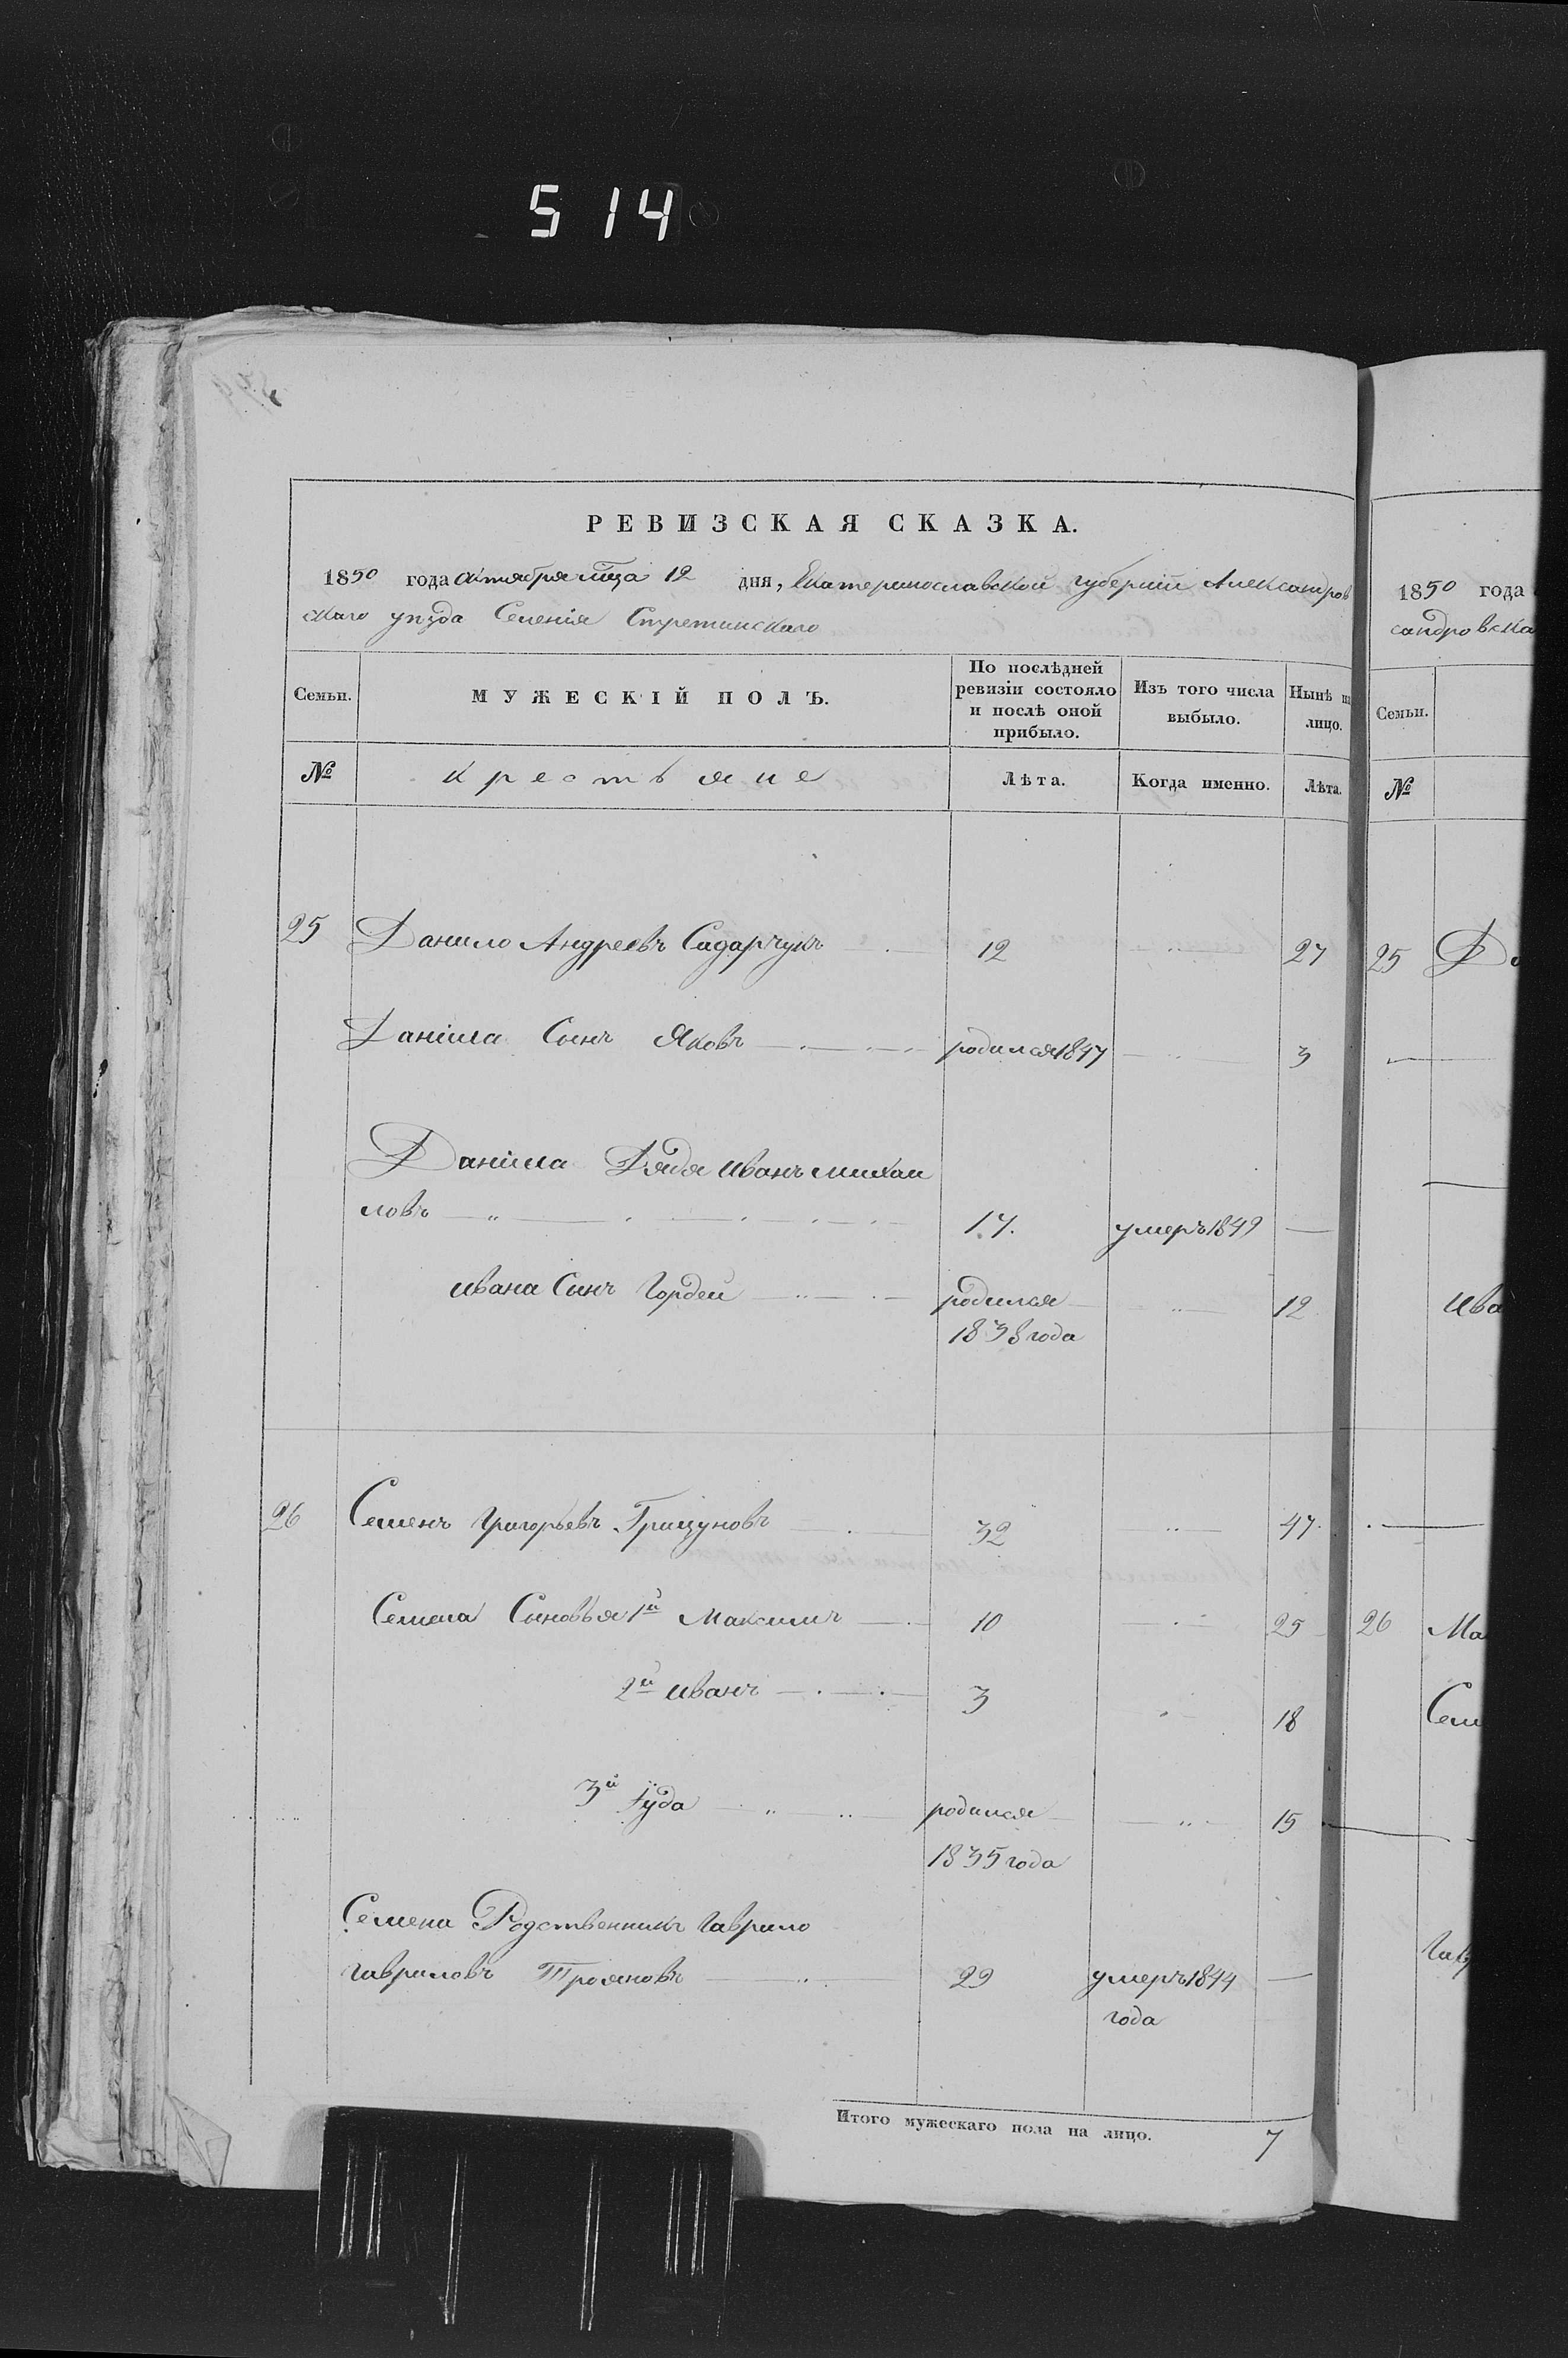 514
РЕВИЗСКАЯ СКАЗКА.
1850 года октября мца 12 дня, Екатеринославской губерніи Александров
скаго уѣзда Селенія Стретинскаго
Семьи. МУЖЕСКІЙ ПОЛЪ. По послѣдней ревизіи состояло и послѣ оной прибыло. Изъ того числа выбыло. Нынѣ на лицо.
№ крестьяне Лѣта. Когда именно. Лѣта.
25 Данило Андреевъ Сидарчукъ 12 27
Даніила Сынъ Яковъ родился 1847 3
Даніила Дядя Иванъ Михаи
ловъ 17. умеръ 1849
Ивана Сынъ Гордей родился 12
1838 года
26 Семенъ Григорьевъ Грицуновъ 32 47.
Семена Сыновья 1й Максимъ 10 25
2й Иванъ 3 18
3й Іуда родился 15
1835 года
Семена Родственникъ Гаврило
Гавриловъ Трояновъ 29 умеръ 1844
года
Итого мужескаго пола на лицо. 7
1850 года
сандровска
Семьи.
№
25 Да
Ива
26 Ма
Сем
Гав